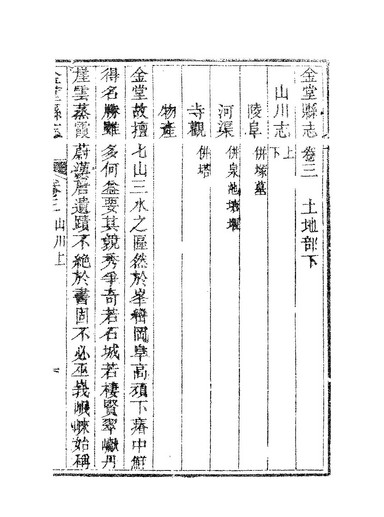 金堂縣志 卷三 土地部下
山川志上下
陵阜 併塚墓
河渠 併泉池塘堰
寺觀 併塔
物產
金堂故擅七山三水之區然於峯稱岡阜高須下瘠中鮮
得名勝雖多何益要其競秀爭奇若石城若棲賢翠巘丹
崖雲蒸霞蔚漢唐遺蹟不絶於書固不必巫峩峨崍始稱
金堂縣志 卷三 山川上 一